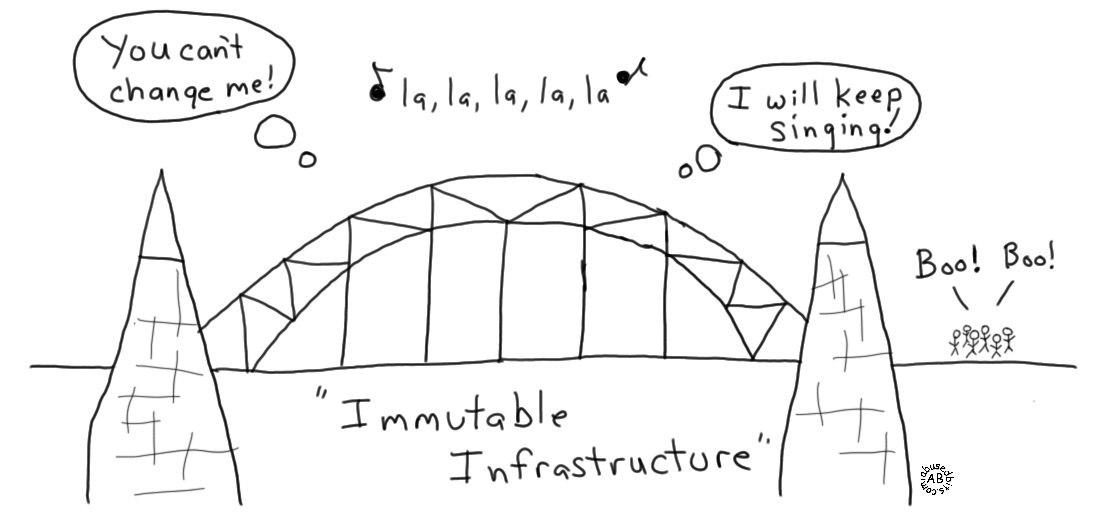 You can't
change me!
la, la, la, la, la
I will keep
singing!
Boo! Boo!
"Immutable
Infrastructure"
abusedbits.com
AB